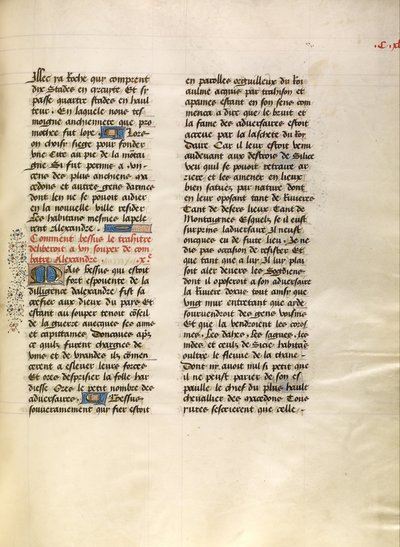 .C. xl
Illec ya Roche quy comprent
dix Stades en circuyte Et sy
passe quattre stades en haul
teur. En laquele nous tes
moigne anchiennete que pro
mothee fut loye. Lors
on choisy siege pour fonder
vne Cite au pie de la mõtai
gne Si fut permis a viii
cens des plus anchiens ma
cedons et autres gens darmes
dont len ne se pouoit aidier
en la nouuelle ville resider
Les habitans mesmes lapele
rent Alexandre.
Comment bessus le trahitre
deliberoit a vn souper de com
batre Alexandre. x.e
Mais bessus qui estoit
fort espouente de la
dilligence dalexandre fist sa
crefier aux dieux du pays Et
estant au souper tenoit cõseil
de la guerre auecques ses amis
et capittaines Doncques apres
ce quilz furent chargies de
vins et de viandes ilz cõmen
cerent a esleuer leurs forces
Et ores desprisier la folle har
diesse Ores le petit nombre des
aduersaires. Bessus
souuerainement qui fier estoit
en parolles orguilleux du Roi
aulme acquis par trahison et
apaines estant en son sens com
menca a dire que le bruit et
la fame des aduersaires estoit
accrue par la laschete du Roy
Daire Car il leur estoit venu
audeuant aux destrois de Silice
veu quil se pouoit retraire ar
riere et les amener en lieux
bien seures par nature dont
en leur oposant tant de Riuieres
Tant de desers lieux Tant de
Montaignes Esquelz se il eust
surprins laduersaire Il neust
oncques eu de fuite lieu. Je ne
dis pas occasion de resister Et
que tant que a luy Il luy plai
soit aler deuers les Sogdiens
dont il oposeroit a son aduersaire
la Riuiere doxus tout ainsi que
vng mur entretant que ayde
souruendroit des gens voisins
Et que la vendroient les coros
mes. Les dahes. Les sagues. les
indes et ceulx de Sicie habitans
oultre le fleuue de la thane
Dont ny auoit nul si petit que
il ne peust parier de son es
paule le chief du plus hault
cheuallier des macedons Tous
yures sescrierent que celle